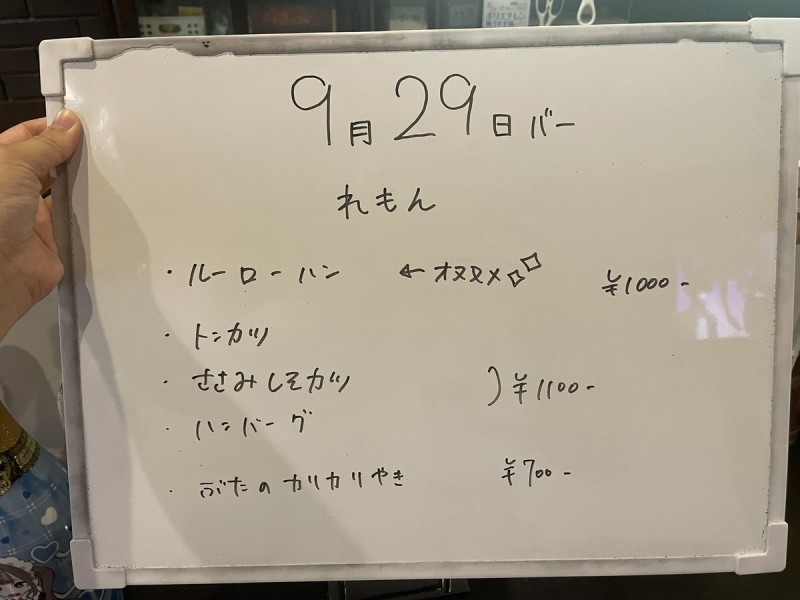 9月29日バー
れもん
・ルーローハン ←オススメ ¥1000-
・トンカツ
・ささみしそカツ )¥1100-
・ハンバーグ
・ぶたのカリカリやき ¥700-